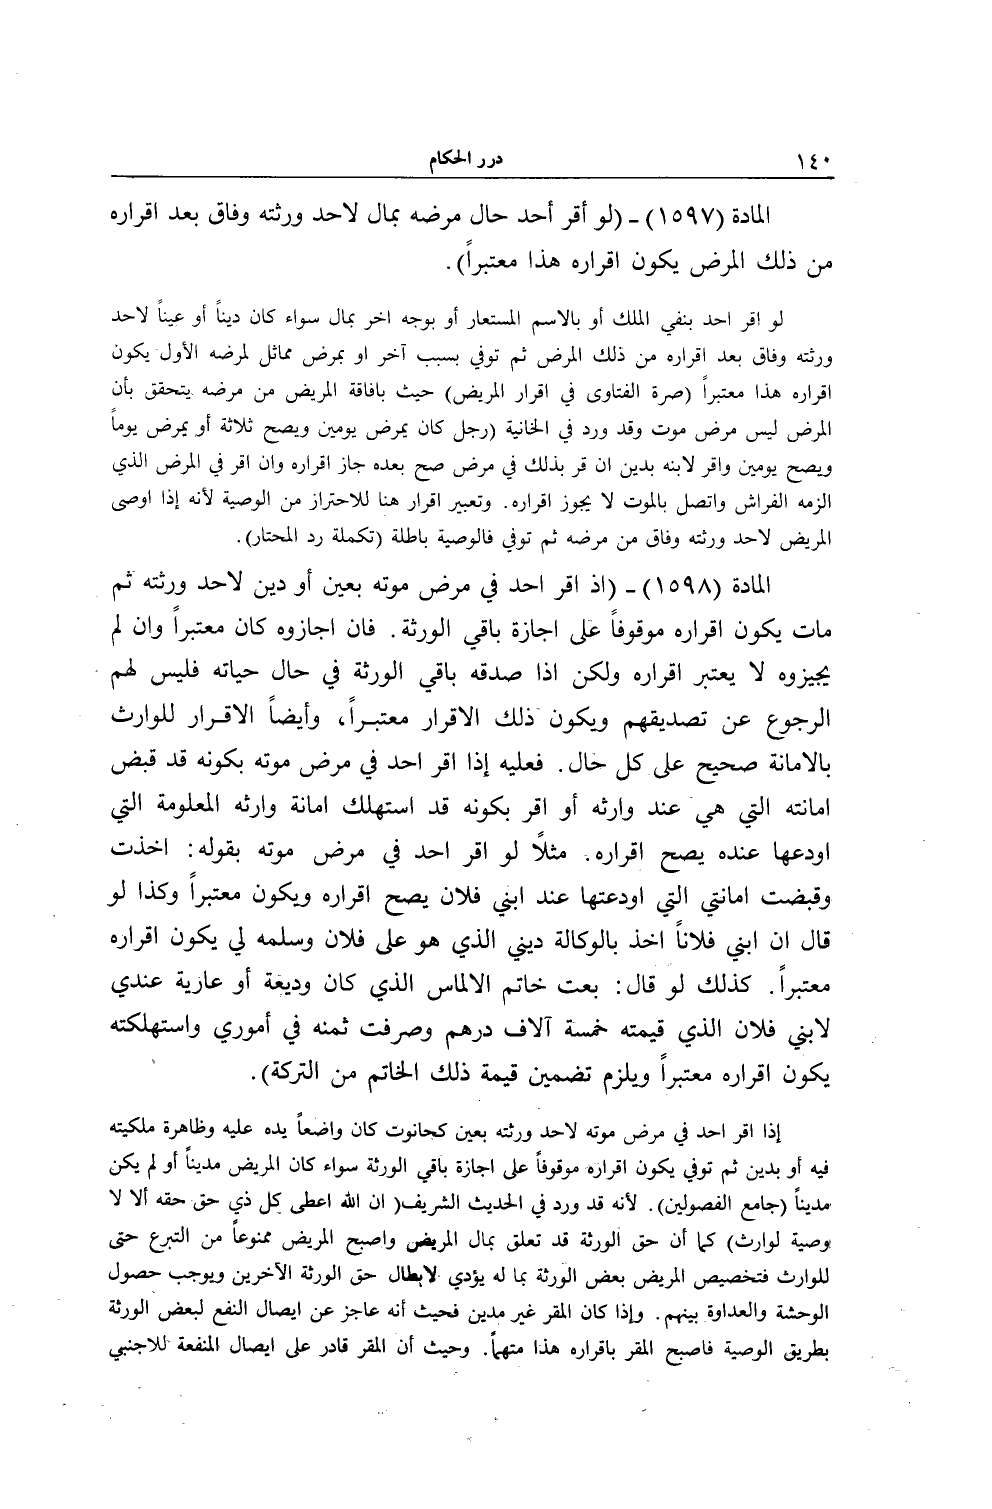 ١٤٠
درر الحكام
المادة (١٥٩٧) - (لو أقر أحد حال مرضه بمال لاحد ورثته وفاق بعد اقراره
من ذلك المرض يكون اقراره هذا معتبراً).
لو اقر احد بنفي الملك أو بالاسم المستعار أو بوجه اخر بمال سواء كان ديناً أو عيناً لاحد
ورثته وفاق بعد اقراره من ذلك المرض ثم توفي بسبب آخر او بمرض مماثل لمرضه الأول يكون
اقراره هذا معتبراً (صرة الفتاوى في اقرار المريض) حيث بافاقة المريض من مرضه يتحقق بأن
المرض ليس مرض موت وقد ورد في الخانية (رجل كان يمرض يومين ويصح ثلاثة أو يمرض يوماً
ويصح يومين واقر لابنه بدين ان قر بذلك في مرض صح بعده جاز اقراره وان اقر في المرض الذي
الزمه الفراش واتصل بالموت لا يجوز اقراره. وتعبير اقرار هنا للاحتراز من الوصية لأنه إذا اوصى
المريض لاحد ورثته وفاق من مرضه ثم توفي فالوصية باطلة (تكملة رد المحتار).
المادة (١٥٩٨) - (اذ اقر احد في مرض موته بعين أو دين لاحد ورثته ثم
مات يكون اقراره موقوفاً على اجازة باقي الورثة. فان اجازوه كان معتبراً وان لم
يجيزوه لا يعتبر اقراره ولكن اذا صدقه باقي الورثة في حال حياته فليس لهم
الرجوع عن تصديقهم ويكون ذلك الاقرار معتبراً، وأيضاً الاقرار للوارث
بالامانة صحيح على كل حال. فعليه إذا اقر احد في مرض موته بكونه قد قبض
امانته التي هي عند وارثه أو اقر بكونه قد استهلك امانة وارثه المعلومة التي
اودعها عنده يصح اقراره. مثلًا لو اقر احد في مرض موته بقوله: اخذت
وقبضت امانتي التي اودعتها عند ابني فلان يصح اقراره ويكون معتبراً وكذا لو
قال ان ابني فلاناً اخذ بالوكالة ديني الذي هو على فلان وسلمه لي يكون اقراره
معتبراً. كذلك لو قال: بعت خاتم الالماس الذي كان وديعة أو عارية عندي
لابني فلان الذي قيمته خمسة آلاف درهم وصرفت ثمنه في أموري واستهلكته
يكون اقراره معتبراً ويلزم تضمين قيمة ذلك الخاتم من التركة).
إذا اقر احد في مرض موته لاحد ورثته بعين كحانوت كان واضعاً يده عليه وظاهرة ملكيته
فيه أو بدين ثم توفي يكون اقراره موقوفاً على اجازة باقي الورثة سواء كان المريض مديناً أو لم يكن
مديناً (جامع الفصولين). لأنه قد ورد في الحديث الشريف( ان الله اعطى كل ذي حق حقه ألا لا
وصية لوارث) كما أن حق الورثة قد تعلق بمال المريض واصبح المريض ممنوعاً من التبرع حتى
للوارث فتخصيص المريض بعض الورثة بما له يؤدي لابطال حق الورثة الآخرين ويوجب حصول
الوحشة والعداوة بينهم. وإذا كان المقر غير مدين فحيث أنه عاجز عن ايصال النفع لبعض الورثة
بطريق الوصية فاصبح المقر باقراره هذا متهماً. وحيث أن المقر قادر على ايصال المنفعة للاجنبي